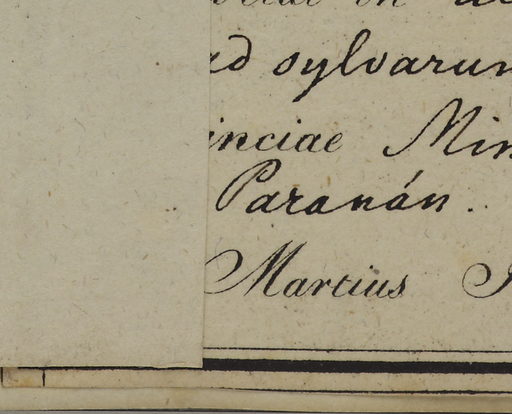 ad sylvarum
inciae Min
Paranán.
Martius